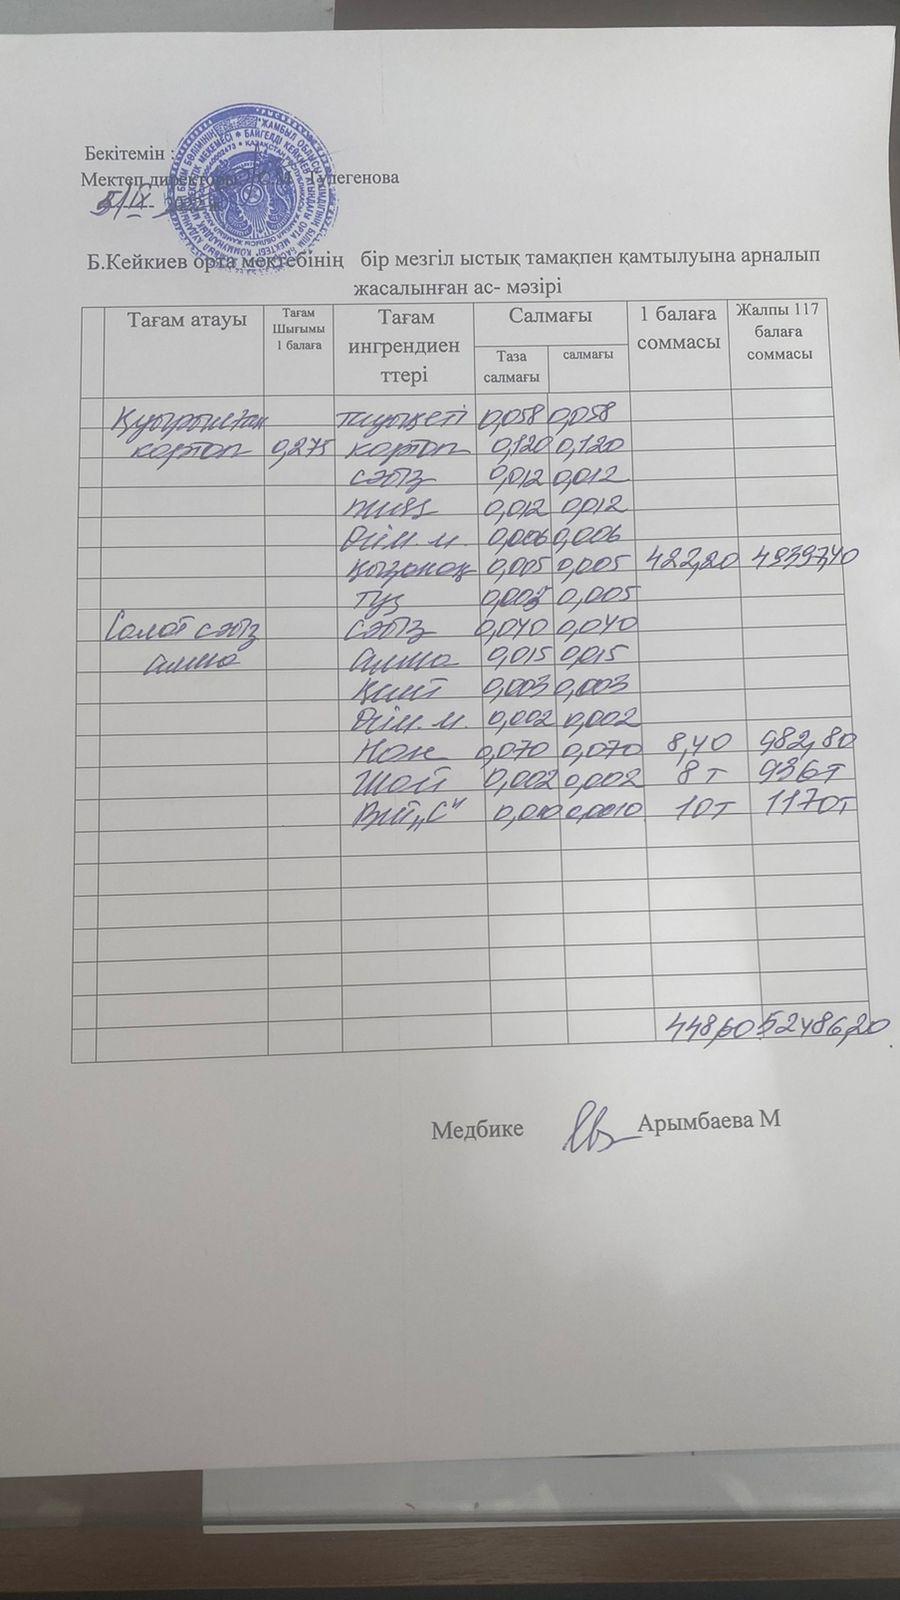 Бекітемін :
Мектеп директоры С.М. Тулегенова
5/IX 2022
Б.Кейкиев орта мектебінің бір мезгіл ыстық тамақпен қамтылуына арналып
жасалынған ас- мәзірі
Тағам атауы Тағам Шығымы 1 балаға Тағам ингрендиен ттері Салмағы 1 балаға соммасы Жалпы 117 балаға соммасы
Таза салмағы салмағы
Қуырылған тауықеті 0,058 0,058
картоп 0,275 картоп 0,120 0,120
сәбіз 0,012 0,012
пияз 0,012 0,012
Өсім. м. 0,006 0,006
қызанақ 0,005 0,005 422,20 49397,40
тұз 0,005
Салат сәбіз сәбіз 0,040 0,040
алма алма 0,015 0,015
Қант 0,003 0,003
Өсім. м. 0,002 0,002
Нан 0,070 0,070 8,40 982,80
Шай 0,002 0,002 8 т 936т
Вит „С" 10т 1170т
448,60 52486,20
Медбике Арымбаева М